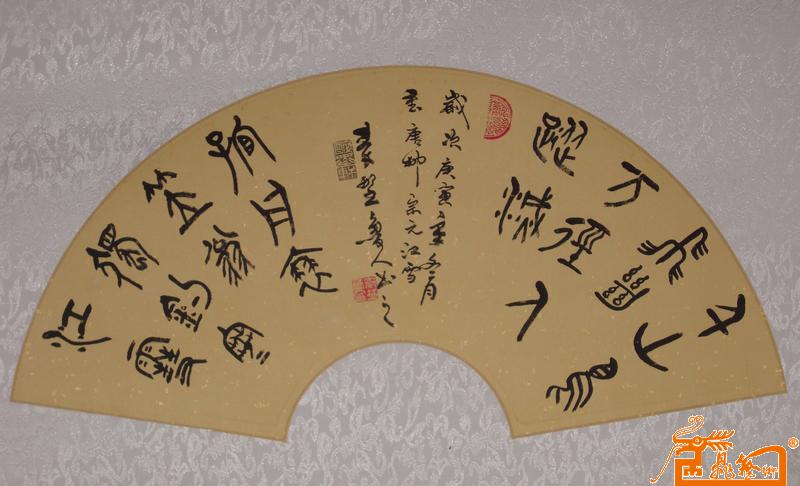 千山鳥
飛絕
万徑人
蹤滅
孤舟蓑
笠翁
獨釣寒
江雪
歲次庚寅冬月
書唐柳宗元江雪
魯人书之